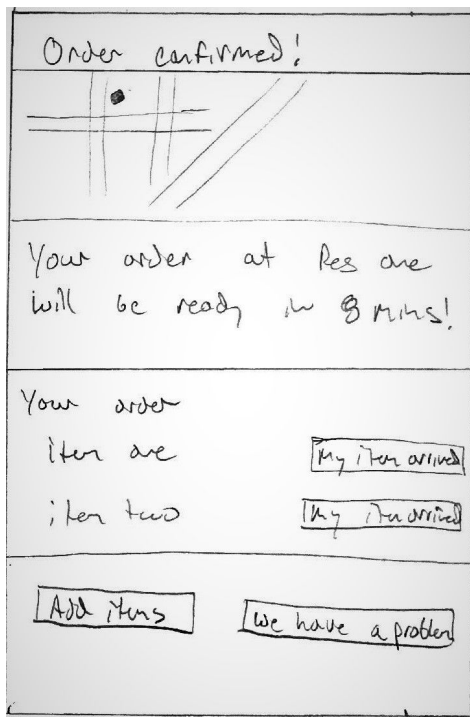 Order confirmed!
Your order at Res one
will be ready in 8 mins!
Your order
item one
My item arrived
item two
My item arrived
Add items
We have a problem